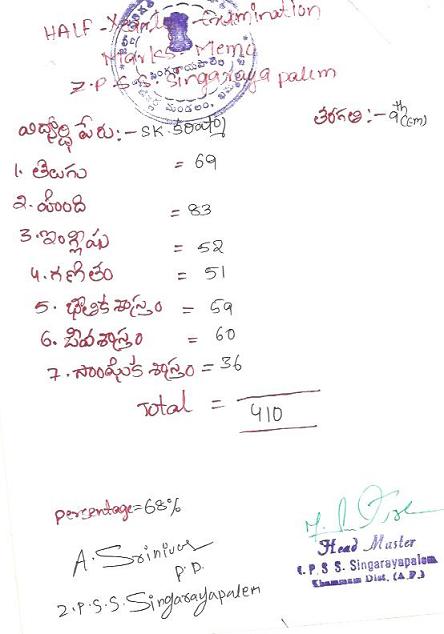 HALF - Yearly - Examination
Marks - Memo
Z.P.S.S. Singarayapalem
విద్యార్థి పేరు:- SK. తరగతి:- 9th (em)
1. తెలుగు = 69
2. హింది = 83
3. ఇంగ్లీషు = 52
4. గణితం = 51
5. భౌతిక శాస్త్రం = 59
6. జీవ శాస్త్రం = 60
7. సాంఘీక శాస్త్రం = 36
Total = 410
percentage = 68%
A. Srinivas
P.D.
Z.P.S.S. Singarayapalem
Head Master
Z.P.S.S. Singarayapalem
Khammam Dist. (A.P.)